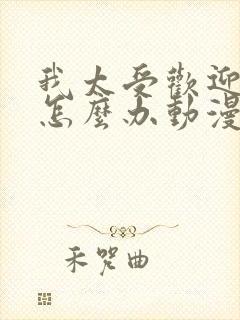 我太受歡迎
怎麼办動漫
禾哭曲